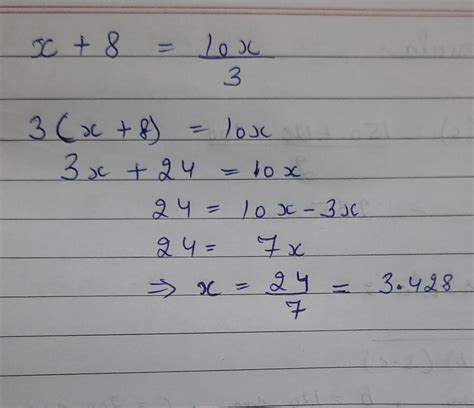 x + 8 = 10x/3
3(x + 8) = 10x
3x + 24 = 10x
24 = 10x - 3x
24 = 7x
⇒ x = 24/7 = 3.428